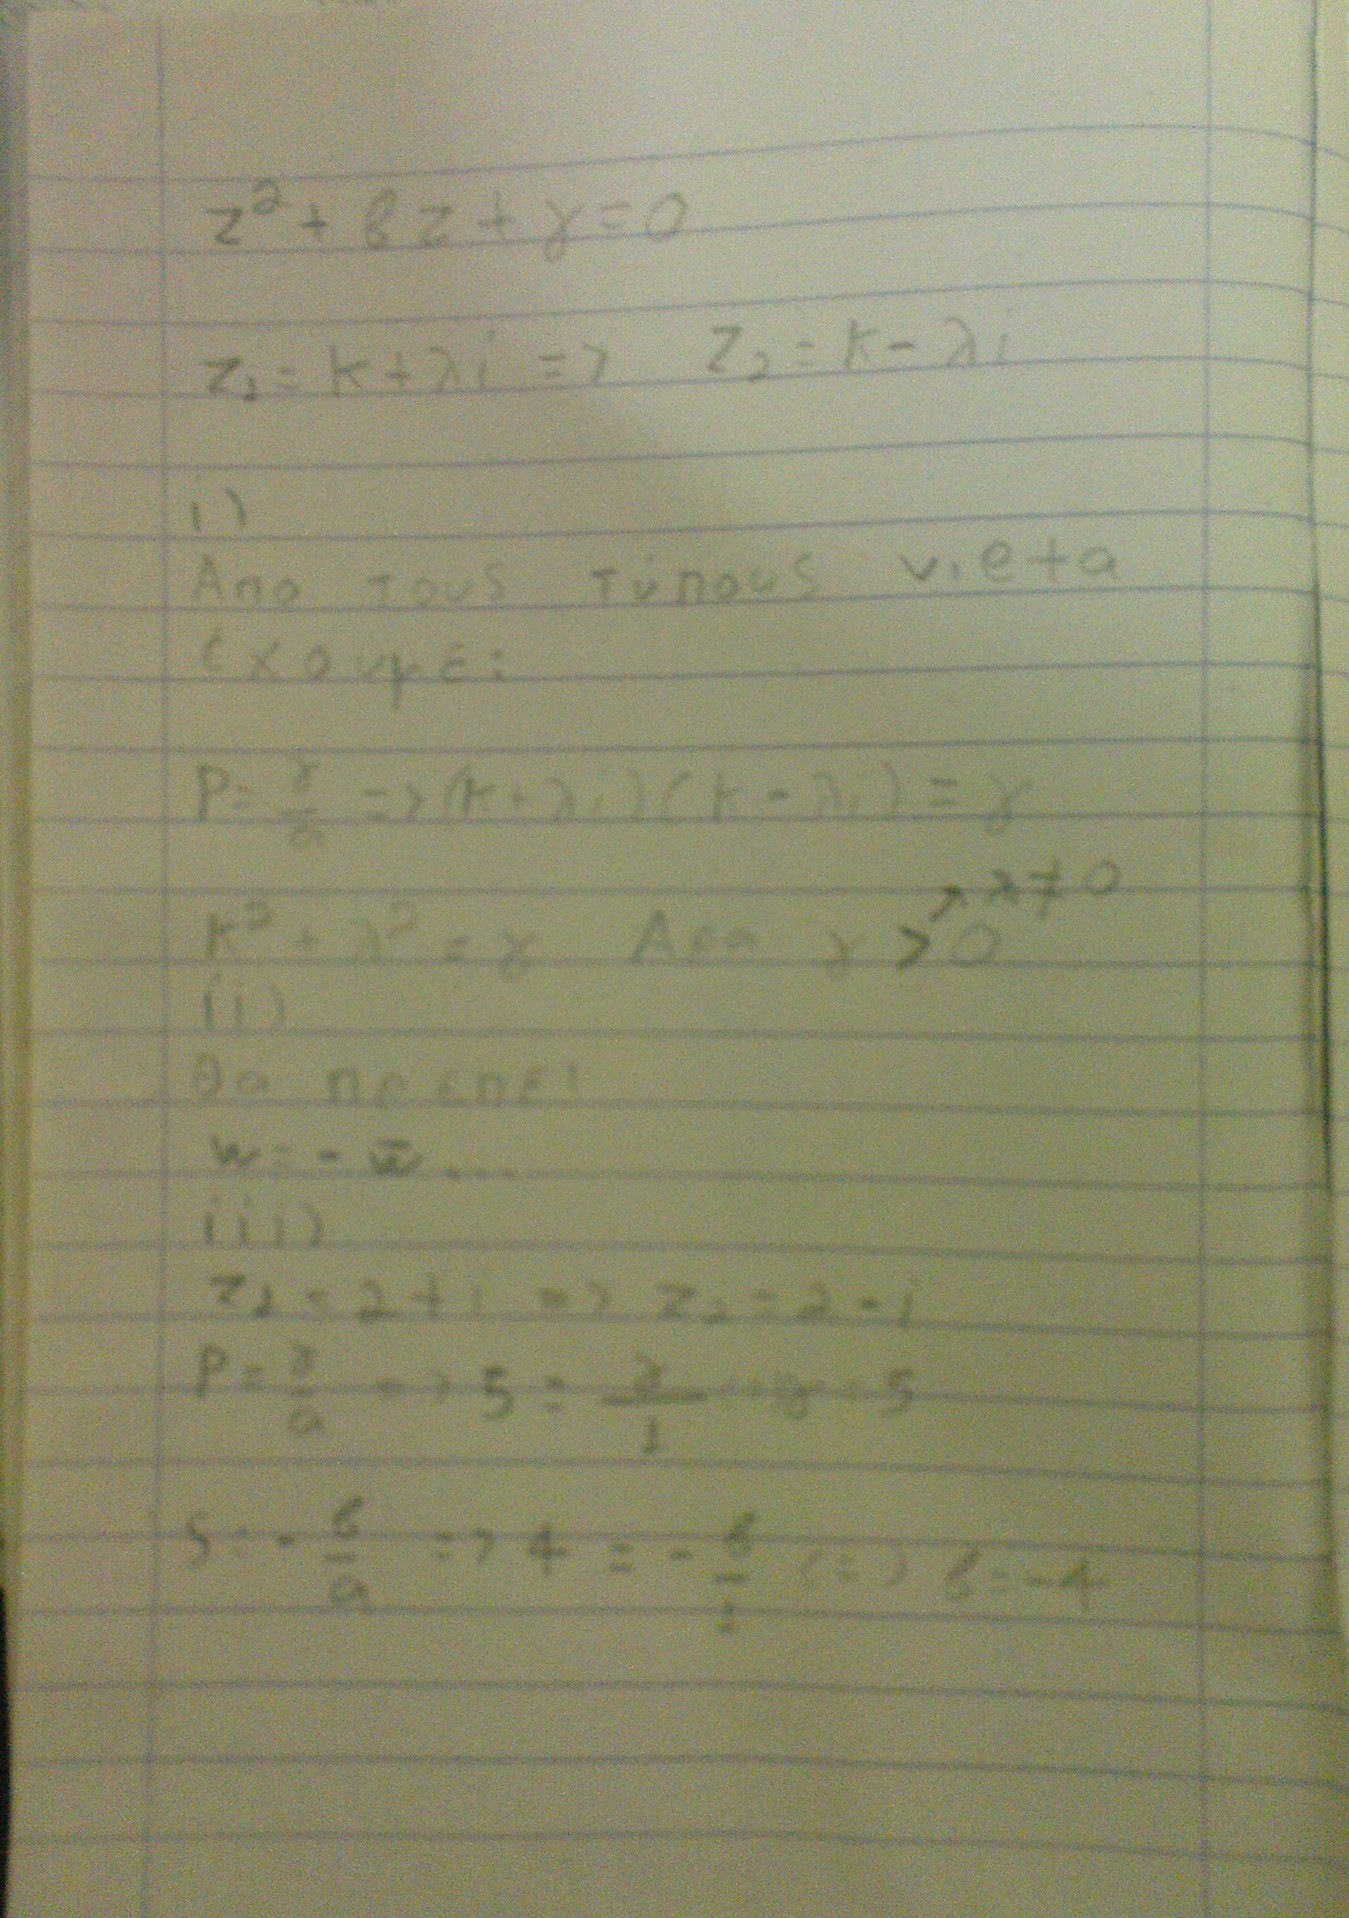 z² + βz + γ = 0
z₁ = κ + λi => z₂ = κ - λi
i)
Απο τους τύπους vieta
εχουμε:
P = γ/α => (κ + λi)(κ - λi) = γ
λ ≠ 0
κ² + λ² = γ Αρα γ > 0
ii)
θα πρεπει
w = - w̄ ...
iii)
z₁ = 2 + i => z₂ = 2 - i
P = γ/α => 5 = γ/1 => γ = 5
S = - β/α => 4 = - β/1 (=) β = -4